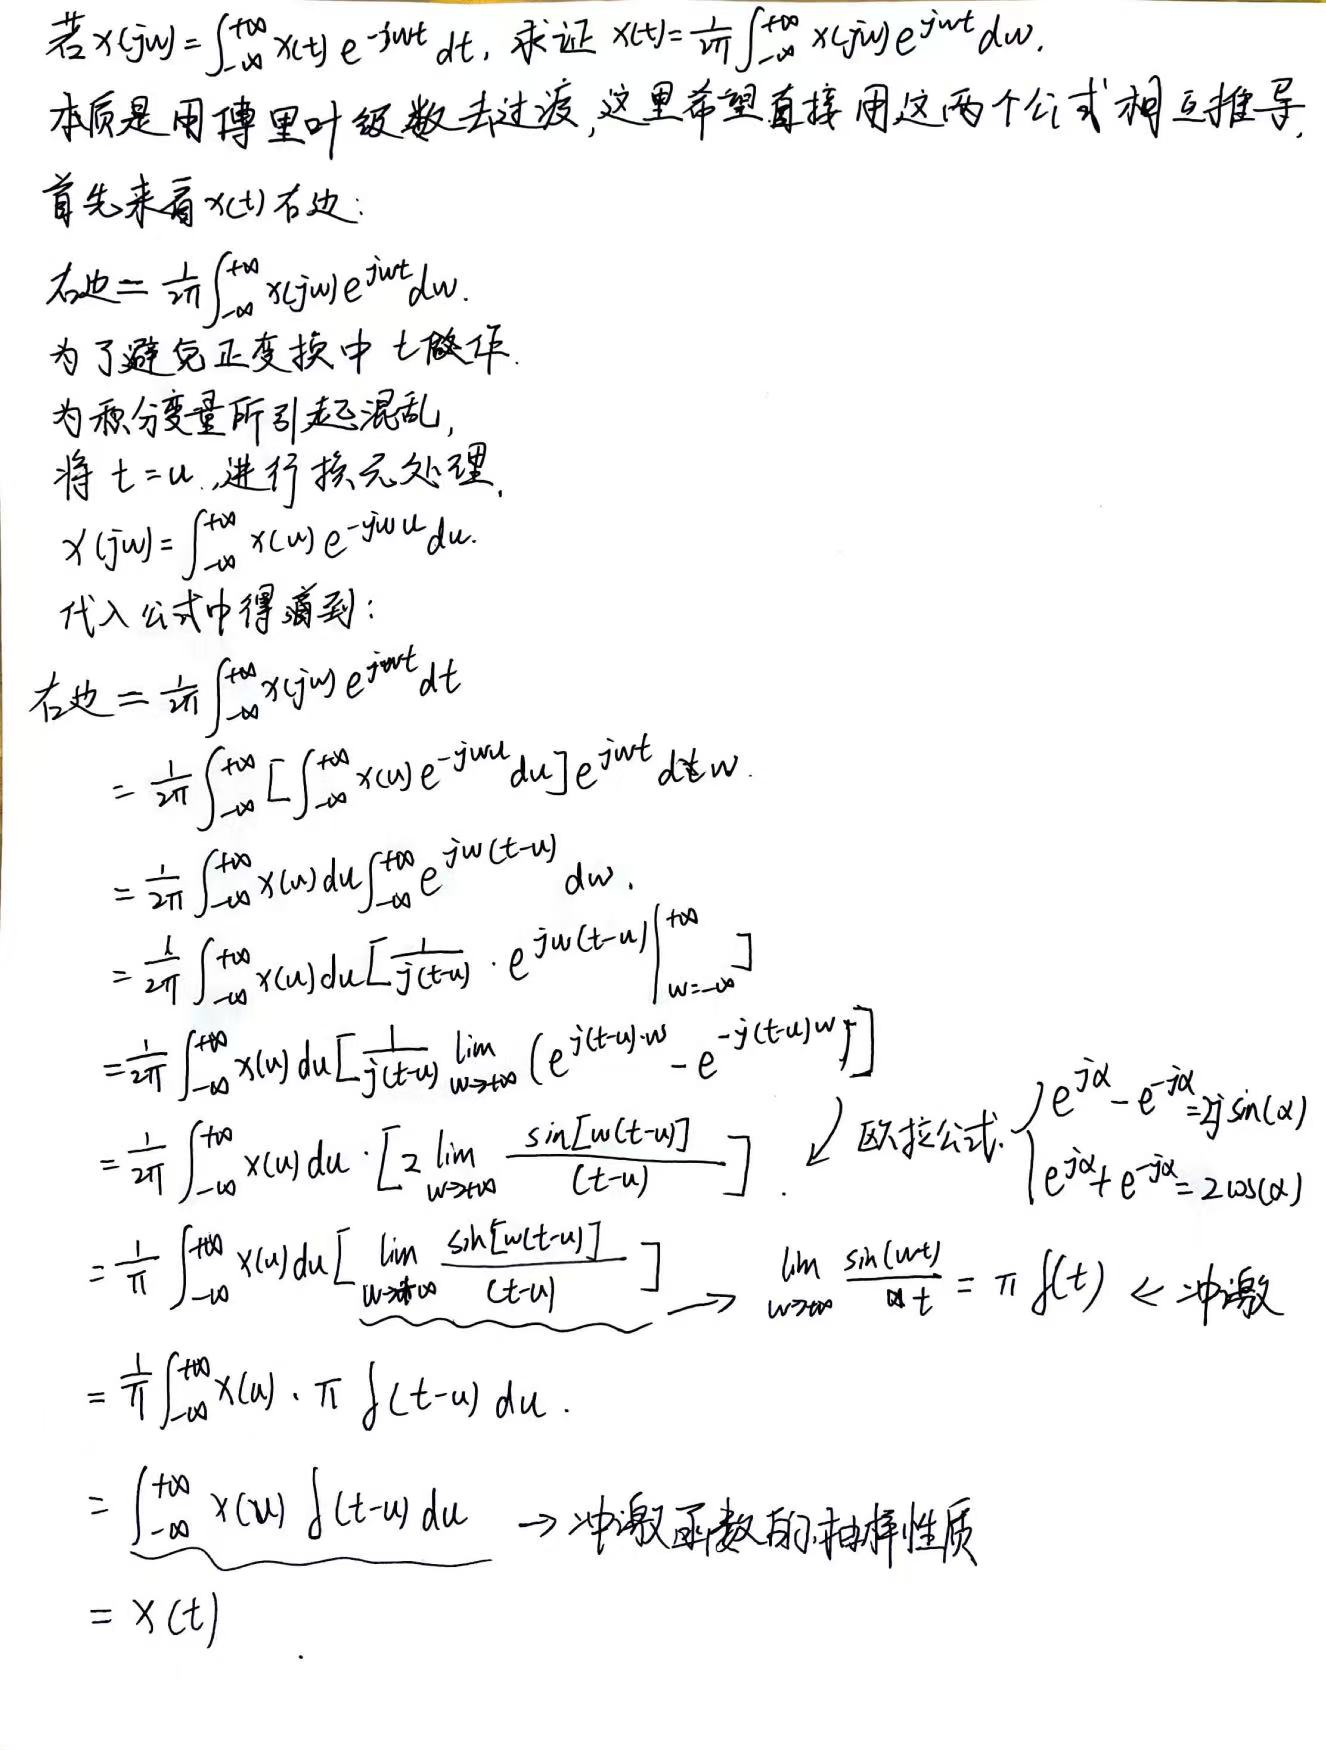 若X(jw)=∫_{-∞}^{+∞} x(t) e^{-jwt} dt, 求证 x(t)=\frac{1}{2π}∫_{-∞}^{+∞} X(jw) e^{jwt} dw.
本质是用傅里叶级数去过渡,这里希望直接用这两个公式相互推导.
首先来看x(t)右边:
右边=\frac{1}{2π}∫_{-∞}^{+∞} X(jw) e^{jwt} dw.
为了避免正变换中 t做作.
为积分变量所引起混乱,
将 t=u.,进行换元处理.
X(jw)=∫_{-∞}^{+∞} x(u) e^{-jwu} du.
代入公式中得到:
右边=\frac{1}{2π}∫_{-∞}^{+∞} X(jw) e^{jwt} dt
=\frac{1}{2π}∫_{-∞}^{+∞} [∫_{-∞}^{+∞} x(u) e^{-jwu} du] e^{jwt} dw.
=\frac{1}{2π}∫_{-∞}^{+∞} x(u) du ∫_{-∞}^{+∞} e^{jw(t-u)} dw.
=\frac{1}{2π}∫_{-∞}^{+∞} x(u) du [\frac{1}{j(t-u)} · e^{jw(t-u)} |_{w=-∞}^{+∞}]
=\frac{1}{2π}∫_{-∞}^{+∞} x(u) du [\frac{1}{j(t-u)} \lim_{w→+∞} (e^{j(t-u)·w} - e^{-j(t-u)w})]
↙ 欧拉公式. { e^{jα} - e^{-jα} = 2j sin(α)
e^{jα} + e^{-jα} = 2cos(α)
=\frac{1}{2π}∫_{-∞}^{+∞} x(u) du · [2 \lim_{w→+∞} \frac{sin[w(t-u)]}{(t-u)}].
=\frac{1}{π}∫_{-∞}^{+∞} x(u) du [\lim_{w→+∞} \frac{sin[w(t-u)]}{(t-u)}] → \lim_{w→+∞} \frac{sin(wt)}{t} = π δ(t) ← 冲激
=\frac{1}{π}∫_{-∞}^{+∞} x(u) · π δ(t-u) du.
=∫_{-∞}^{+∞} x(u) δ(t-u) du → 冲激函数的抽样性质
= x(t)